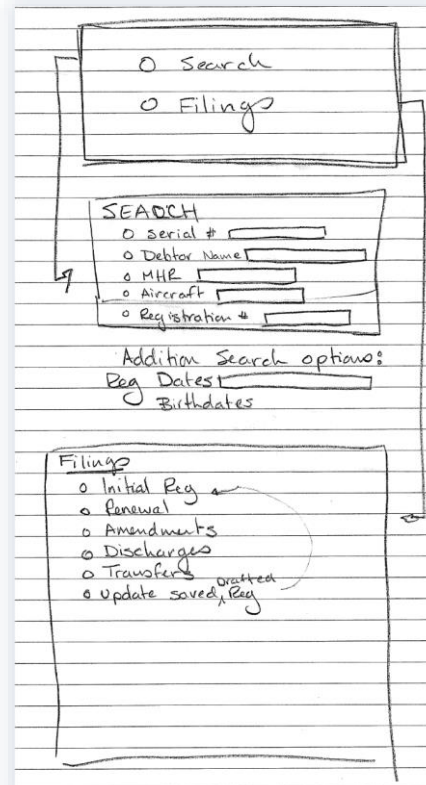 o Search
o Filings
SEARCH
o Serial #
o Debtor Name
o MHR
o Aircraft
o Registration #
Addition Search options:
Reg Dates
Birthdates
Filings
o Initial Reg
o Renewal
o Amendments
o Discharges
o Transfers
o update saved, drafted Reg